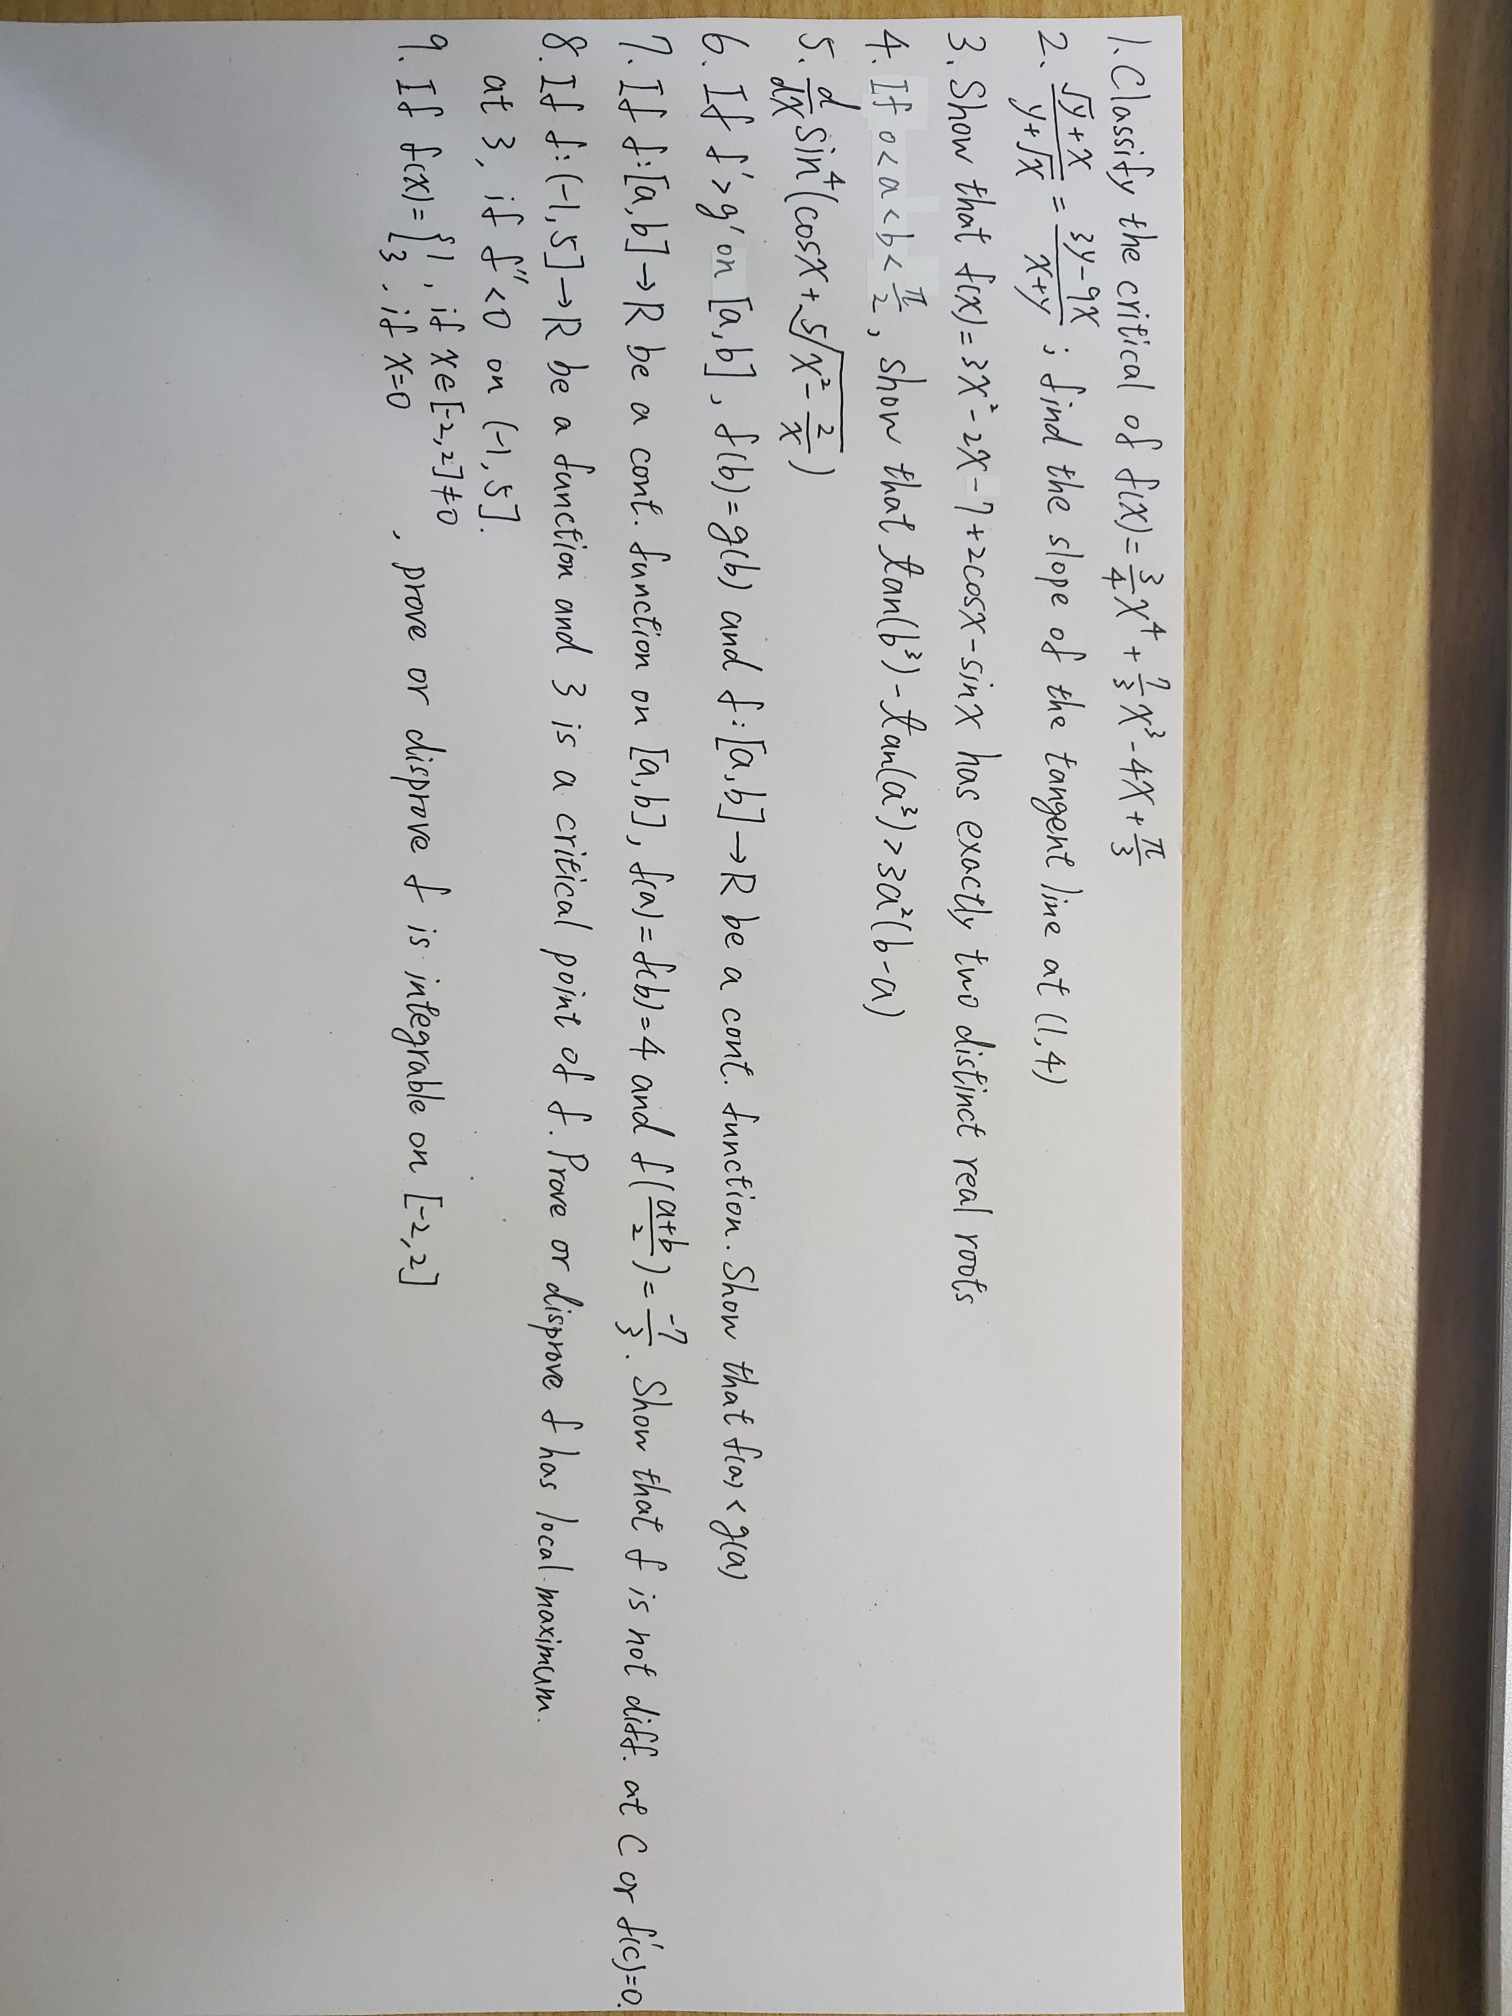 1. Classify the critical of f(x)=3/4 x⁴ + 7/3 x³ - 4x + π/3
2. (√y+x)/(y+√x) = (3y-9x)/(x+y) ; find the slope of the tangent line at (1,4)
3. Show that f(x)=3x²-2x-7+2cosx-sinx has exactly two distinct real roots
4. If 0<a<b<π/2, show that tan(b³)-tan(a³)>3a²(b-a)
5. d/dx sin⁴(cosx+⁵√(x²-2/x))
6. If f'>g' on [a,b], f(b)=g(b) and f:[a,b]→R be a cont. function. Show that f(a)<g(a)
7. If f:[a,b]→R be a cont. function on [a,b], f(a)=f(b)=4 and f((a+b)/2)=-7/3. Show that f is not diff. at C or f'(c)=0.
8. If f:(-1,5]→R be a function and 3 is a critical point of f. Prove or disprove f has local maximum.
at 3, if f''<0 on (-1,5].
9. If f(x)={1, if x∈[-2,2]≠0
3, if x=0, prove or disprove f is integrable on [-2,2]